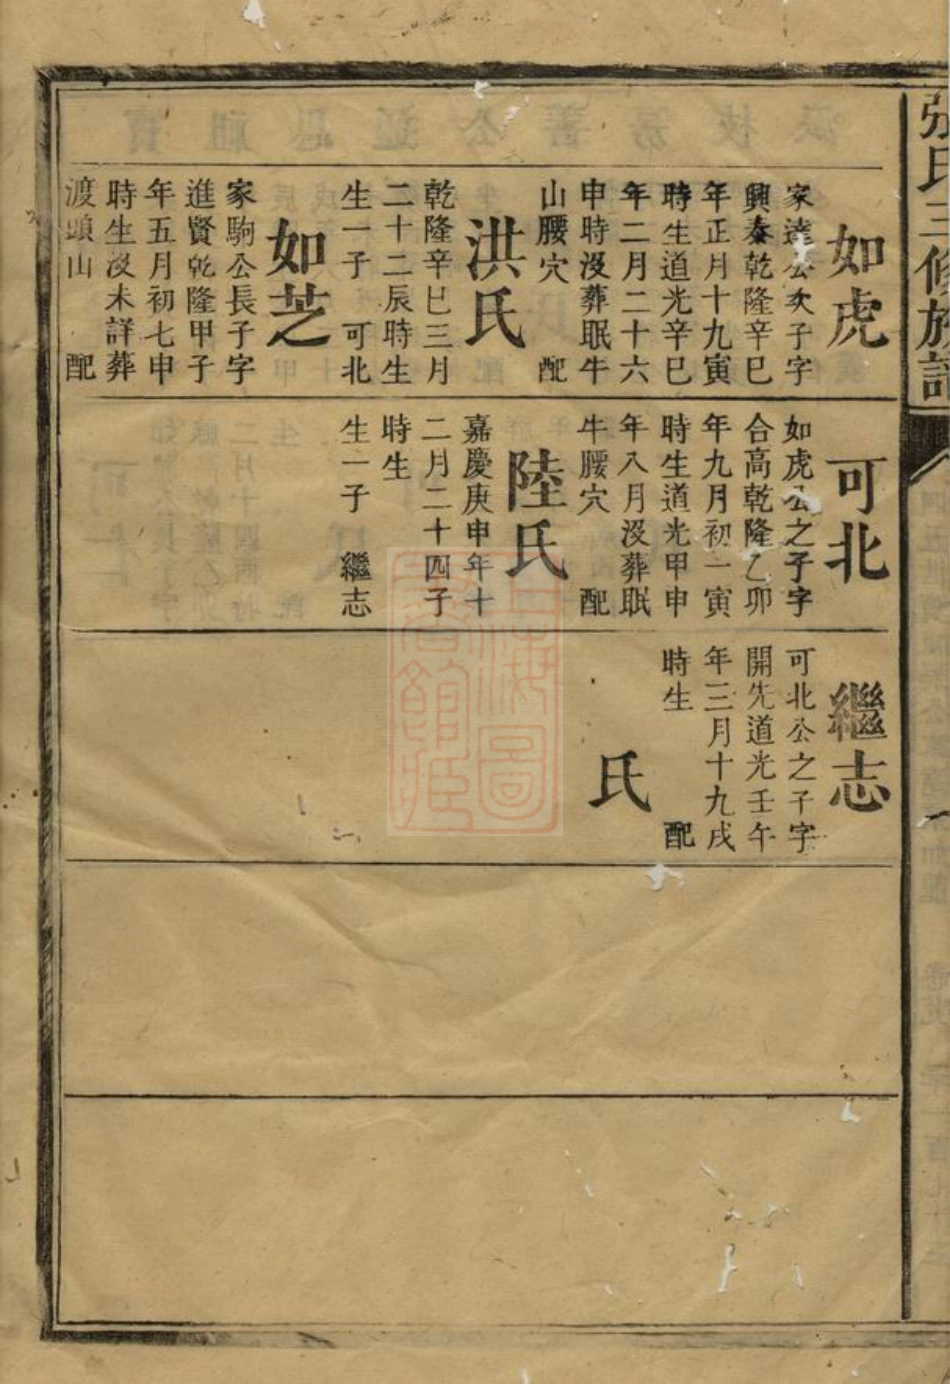 張氏三修族譜
如虎
家達公次子字
興泰乾隆辛巳
年正月十九寅
時生道光辛巳
年二月二十六
申時沒葬眠牛
山腰穴 配
洪氏
乾隆辛巳三月
二十二辰時生
生一子 可北
如芝
家駒公長子字
進賢乾隆甲子
年五月初七申
時生沒未詳葬
渡頭山 配
可北
如虎公之子字
合高乾隆乙卯
年九月初一寅
時生道光甲申
年八月沒葬眠
牛腰穴 配
陸氏
嘉慶庚申年十
二月二十四子
時生
生一子 繼志
繼志
可北公之子字
開先道光壬午
年三月十九戌
時生 配
氏
上海圖書館藏